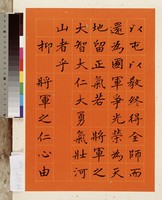 以屯以戰終得全師而
還為國軍爭光榮為天
地留正氣若　將軍之
大智大仁大勇氣壯河
山者乎
柳　將軍之仁心由